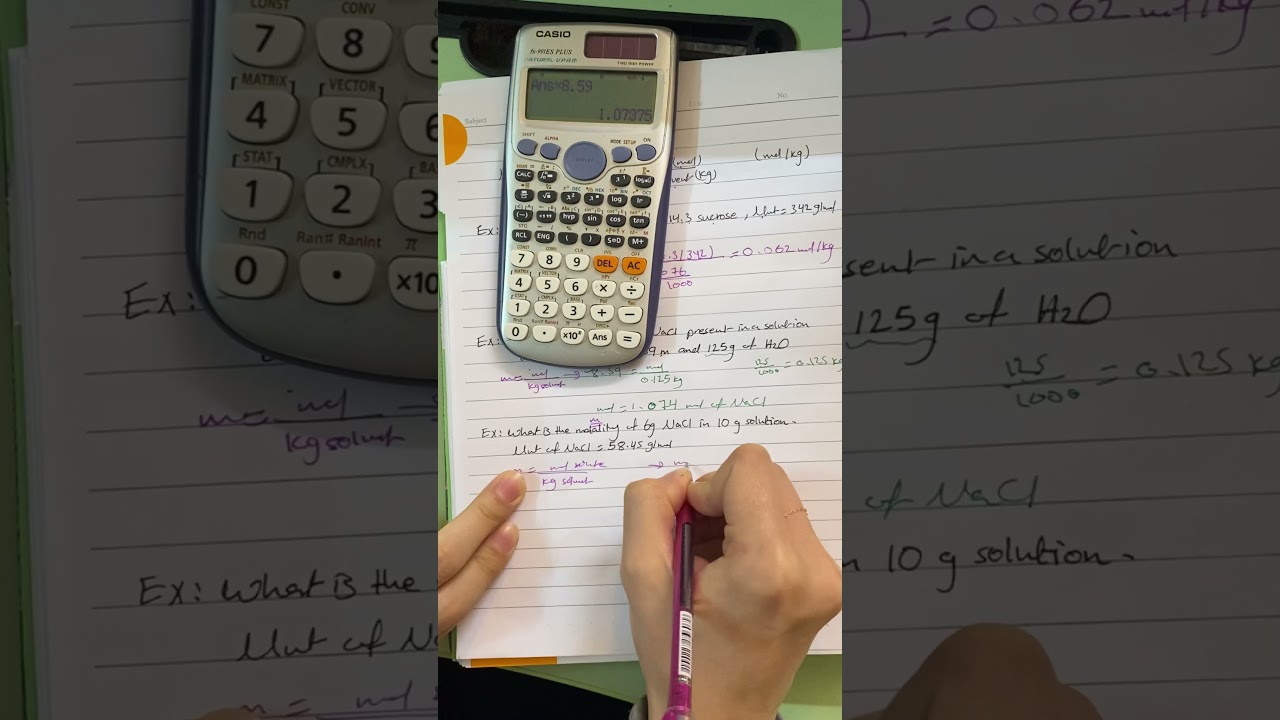 CASIO
fx-991ES PLUS
NATURAL-V.P.A.M.
TWO WAY POWER
Ans×8.59
1.07375
Subject
No.
(mol) (mol/kg)
(kg)
Ex:
14.3 sucrose, Mwt = 342 g/mol
.3/342) = 0.062 mol/kg
1000
Ex: NaCl present in a solution
9 m and 125g of H2O
m = mol / kg solvent → 8.59 = mol / 0.125 kg
125 / 1000 = 0.125 kg
mol = 1.074 mol of NaCl
m
Ex: What is the molality of 6g NaCl in 10 g solution.
Mwt of NaCl = 58.45 g/mol
m = mol solute / kg solvent → m
SHIFT ALPHA MODE SETUP ON
CALC
(-) hyp sin cos tan
RCL ENG ( ) S⇔D M+
7 8 9 DEL AC
4 5 6 × ÷
1 2 3 + −
0 . ×10ˣ Ans =
CONST CONV
7 8
MATRIX VECTOR
4 5 6
STAT CMPLX BA
1 2 3
Rnd Ran# RanInt π
0 . ×10
Ex:
m = mol
kg solvent
Ex: What is the
Mwt of Na
m = mol
= 0.062 mol/kg
sent in a solution
125g of H2O
125 / 1000 = 0.125 kg
of NaCl
10 g solution.